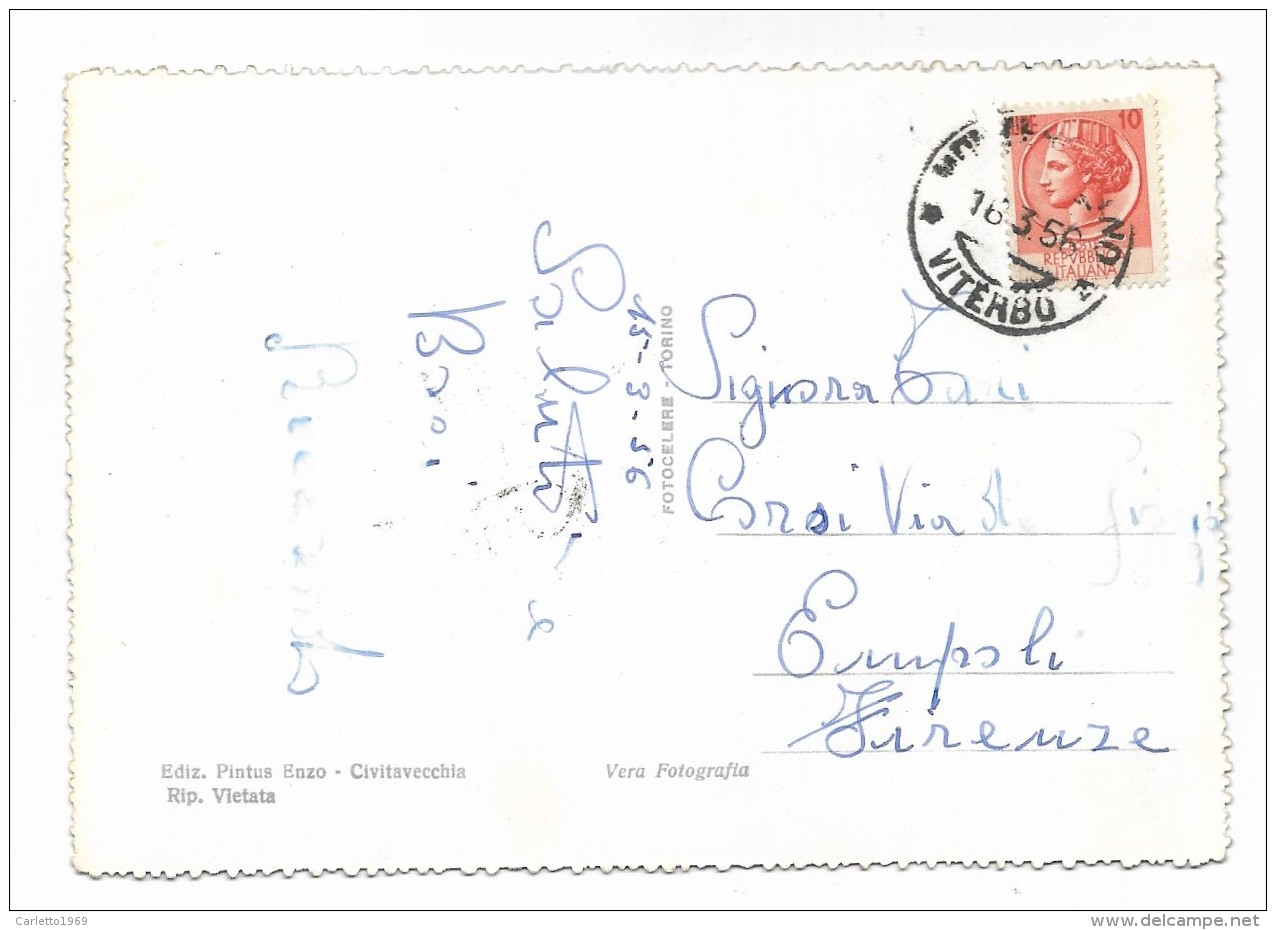 LIRE 10
REPVBBLICA
ITALIANA
16.3.56
VITERBO
15-3-56
Saluti e
Baci
FOTOCELERE - TORINO
Signora
Corsi Via
Empoli
Firenze
Ediz. Pintus Enzo - Civitavecchia
Rip. Vietata
Vera Fotografia
Carletto1969
delcampe.net